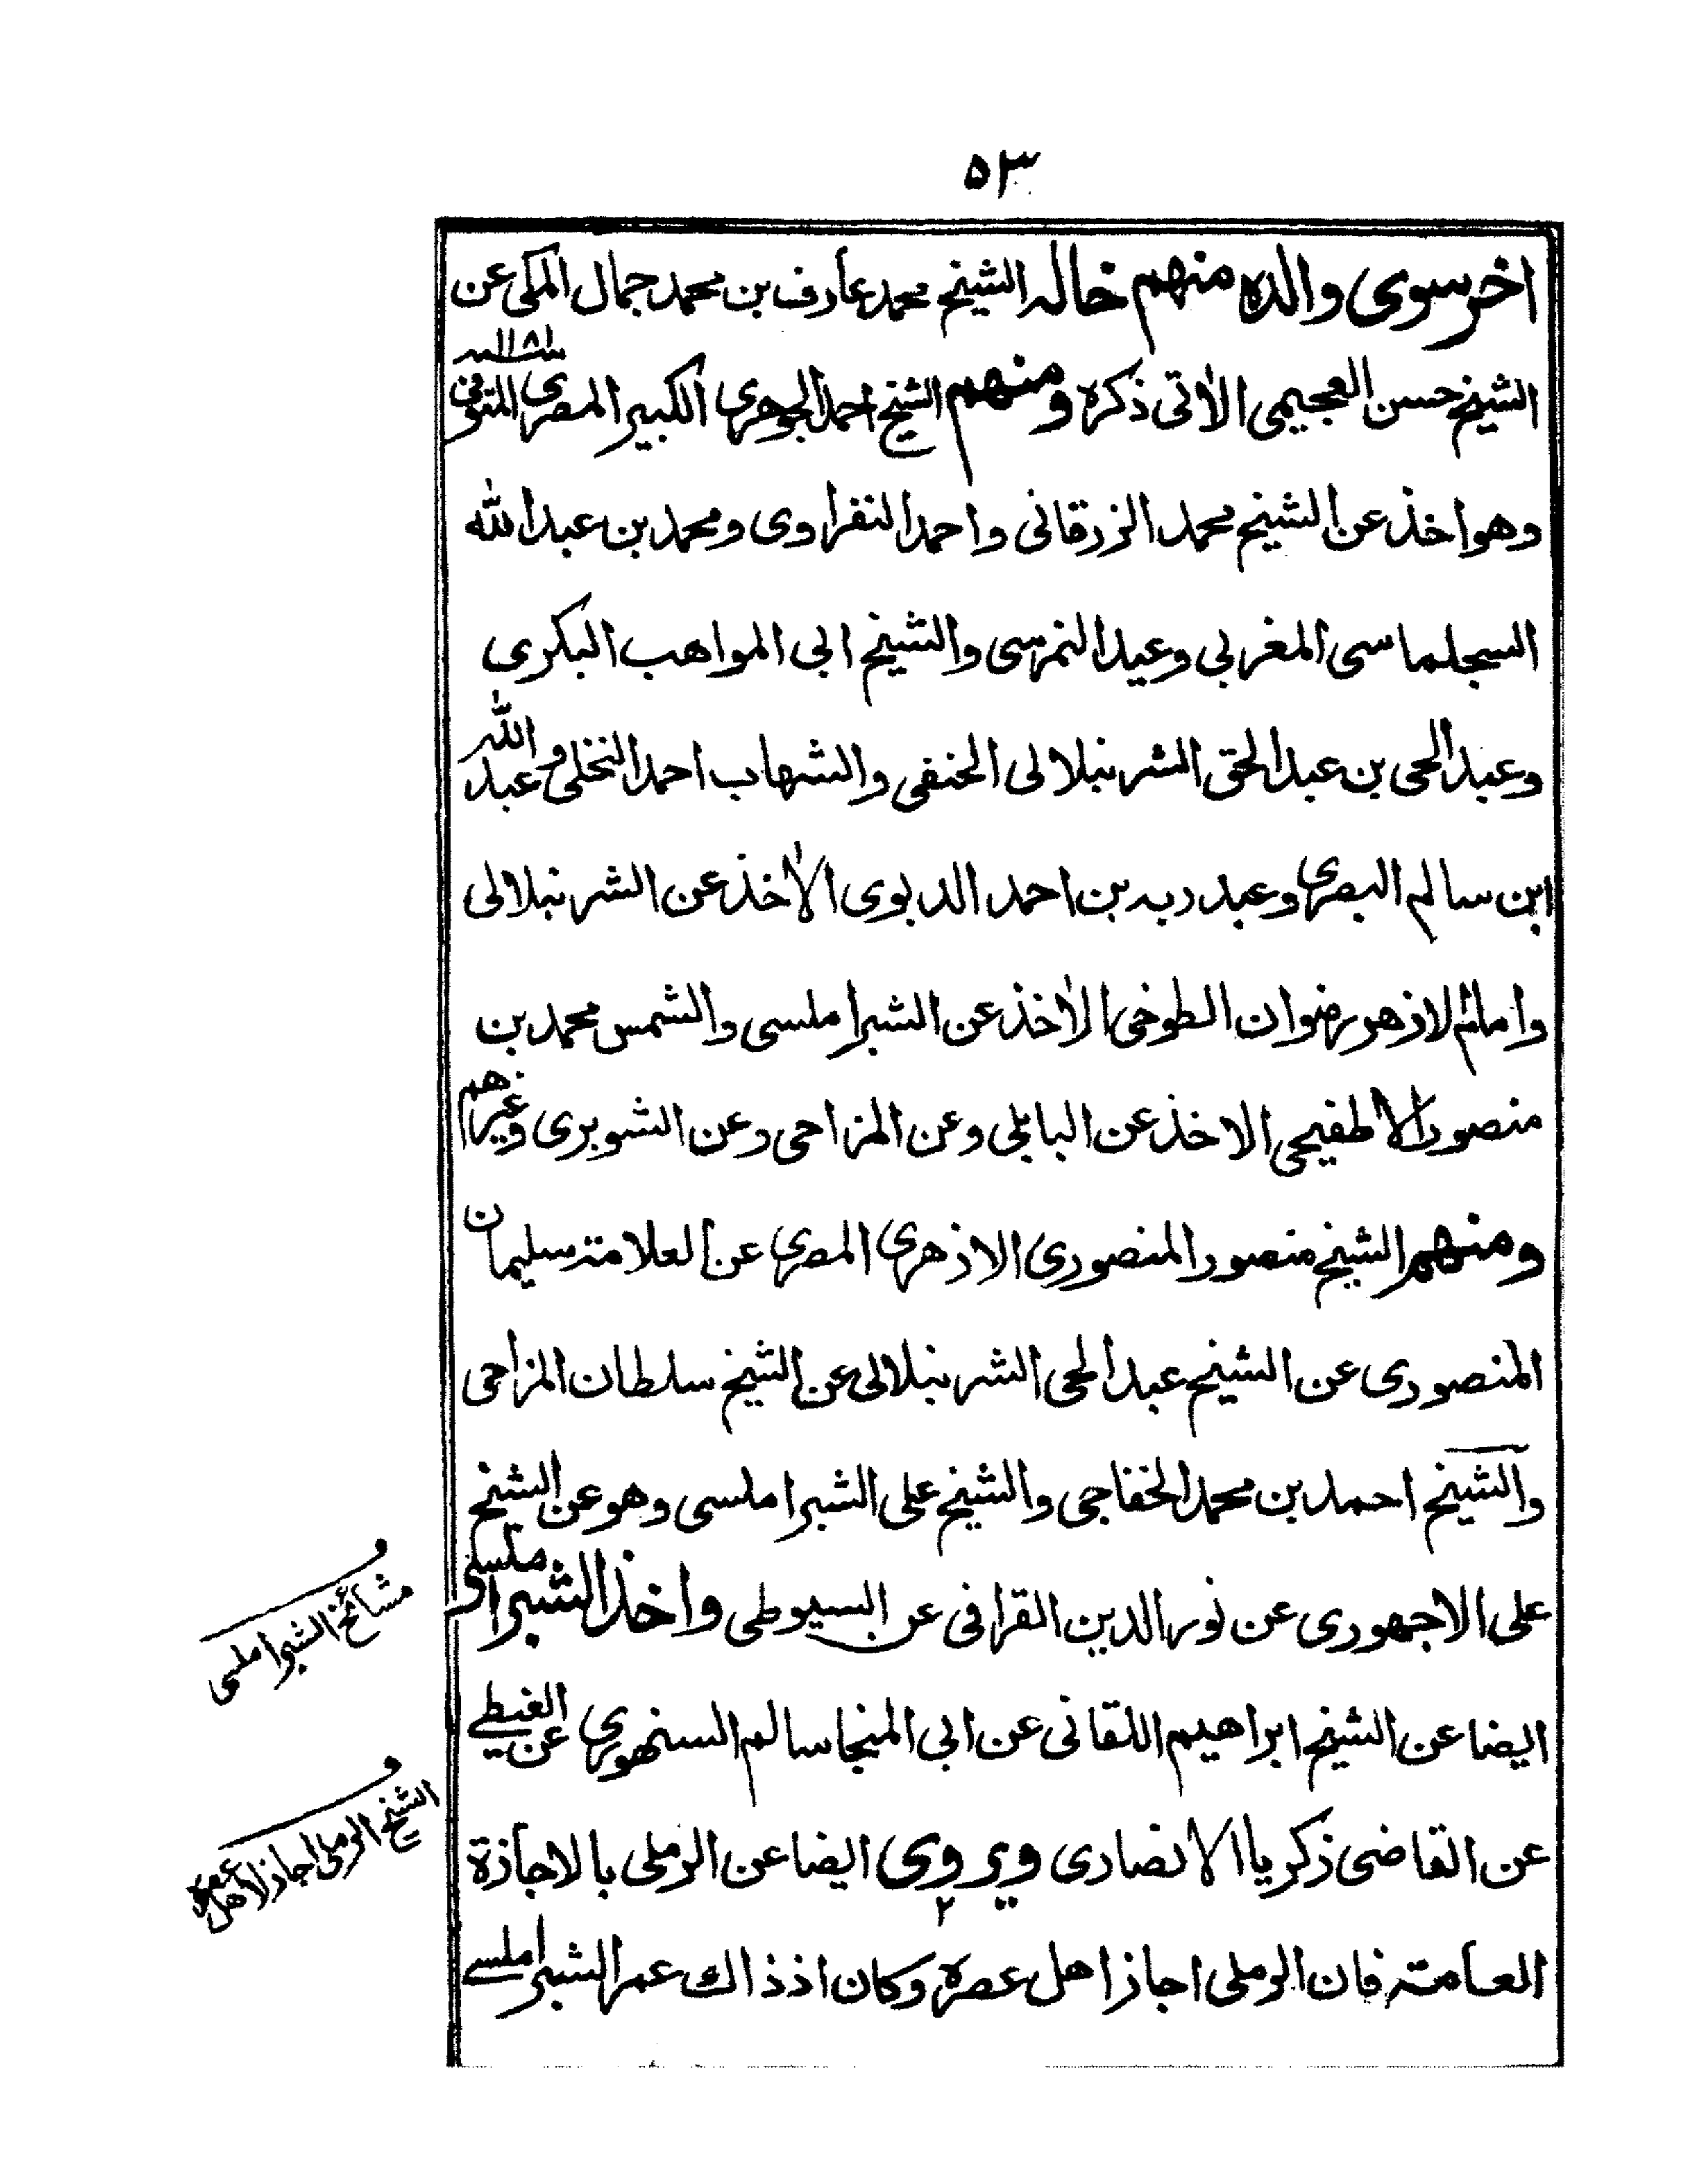 ٥٣
اخر سوى والده منهم خاله الشيخ محمد عارف بن محمد جمال المكى عن
الشيخ حسن العجيمى الاٰتى ذكره ومنهم الشيخ احمد الجوهرى الكبير المصرى المتوفى سنة ١١٨١
وهو اخذ عن الشيخ محمد الزرقانى واحمد النفراوى ومحمد بن عبد الله
السجلماسى المغربى وعيد النمرسى والشيخ ابى المواهب البكرى
وعبد الحى بن عبد الحق الشرنبلالى الحنفى والشهاب احمد النخلى وعبد الله
ابن سالم البصرى وعبد ربه بن احمد الديوى الاٰخذ عن الشرنبلالى
وامام لازهر رضوان الطوخى الاٰخذ عن الشبراملسى والشمس محمد بن
منصور الاطفيحى الاخذ عن البابلى وعن المزاحى وعن الشوبرى وغيرهم
ومنهم الشيخ منصور المنصورى الازهرى المصرى عن العلامة سليمان
المنصورى عن الشيخ عبد الحى الشرنبلالى عن الشيخ سلطان المزاحى
والشيخ احمد بن محمد الخفاجى والشيخ على الشبراملسى وهو عن الشيخ
على الاجهورى عن نور الدين القرافى عن السيوطى واخذ الشبراملسى
ايضا عن الشيخ ابراهيم اللقانى عن ابى المنجا سالم السنهورى عن الغيطى
عن القاضى زكريا الانصارى ويروى ايضا عن الرملى بالاجازة
العامة فان الرملى اجاز اهل عصره وكان اذ ذاك عمر الشبراملسى
٢
مشائخ الشبراملسى
الشيخ الرملى اجاز لاهل عصره